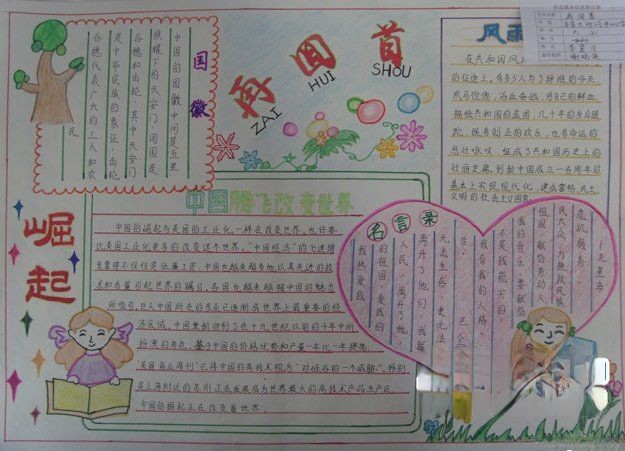 再回首
ZAI HUI SHOU
国徽
中国的国徽中间是五星
照耀下的天安门，周围是
谷穗和齿轮，其中天安门
是中华民族的象征，齿轮
谷穗代表广大的工人和农
民。
风雨
在共和国风
的征途上，有多少人为了祥和的今天，
戎马倥偬，浴血奋战，用自己的鲜血
描绘共和国的蓝图，几十年的岁月蹉
跎，既有创业的欢乐，也有命运的
悲壮歌吹，组成了共和国历史上的
壮丽史篇，到新中国成立一百周年时
基本上实现现代化，建成富强、民主
文明的社会主义国家。
崛起
中国腾飞改变世界
中国的崛起与美国的工业化一样在改变世界，也许要
比美国工业化更多的改变这个世界。"中国经济"的飞速增
长靠得不仅仅是低廉工资，中国也越来越多地以其先进的技
术和质量引起世界的瞩目，各国也越来越被中国的魅力
所吸引，巨人中国所在的东亚已逐渐成世界上最重要的经
济区域，中国重新回到了在十九世纪以前的千年中所
扮演的角色，鉴于中国的价格优势和产量一年比一年提高，
美国商业周刊"已将中国的高技术视为"对硅谷的一个威胁"，特别
是上海附近的苏州正在发展成为世界最大的高技术产品生产区，
中国的崛起正在改变着世界。
名言录
我热爱我
的祖国，爱我的
人民，离开了她，
离开了他们，我就
无法生存，更无法
写作。
巴金
我有我的人格、
不是钱能买的，
我的音乐，要献给
祖国，献给劳动人
民大众，为挽救民族
危机服务。
——冼星海